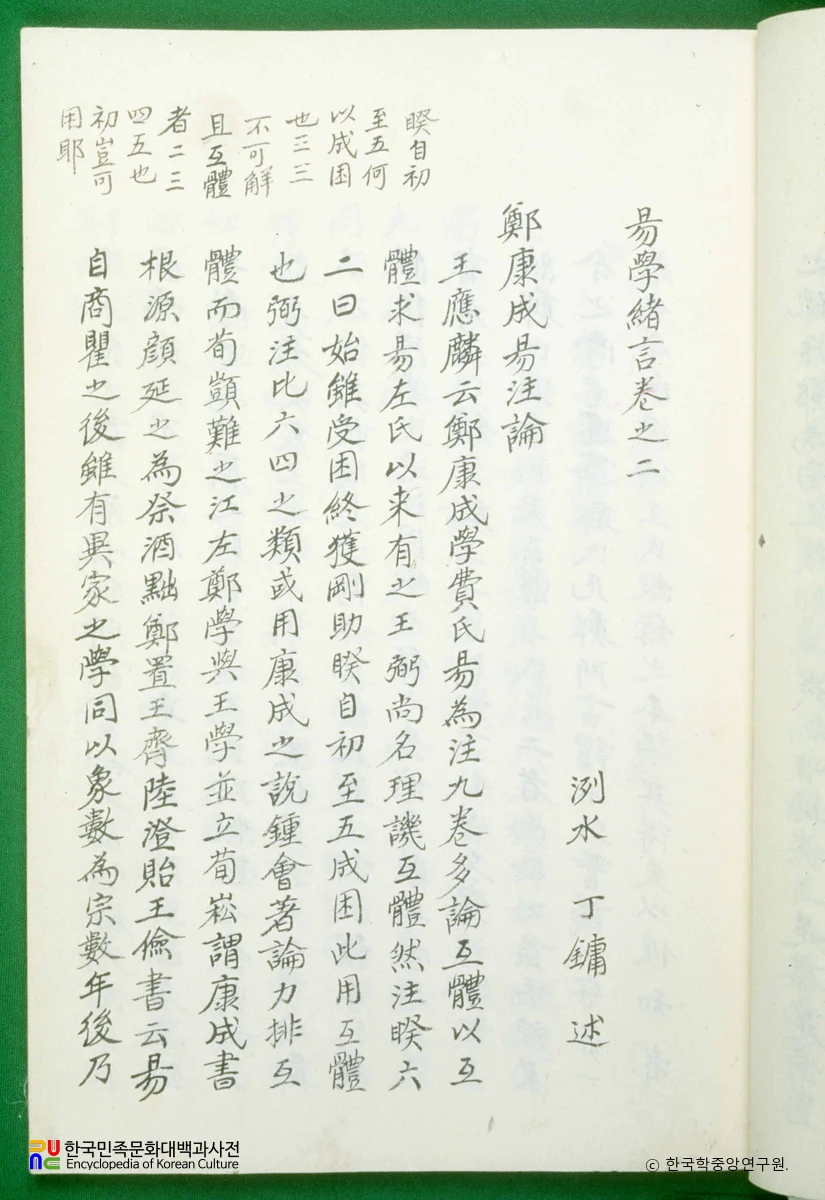 易學緒言卷之二
洌水 丁鏞 述
鄭康成易注論
王應麟云鄭康成學費氏易為注九卷多論互體以互
體求易左氏以来有之王弼尚名理譏互體然注睽六
二曰始雖受困終獲剛助睽自初至五成困此用互體
也弼注比六四之類或用康成之說鍾會著論力排互
體而荀顗難之江左鄭學與王學並立荀崧謂康成書
根源顔延之為祭酒黜鄭置王齊陸澄貽王儉書云易
自商瞿之後雖有異家之學同以象數為宗數年後乃
睽自初
至五何
以成困
也三三
不可解
且互體
者二三
四五也
初豈可
用耶
한국민족문화대백과사전
Encyclopedia of Korean Culture
ⓒ 한국학중앙연구원.